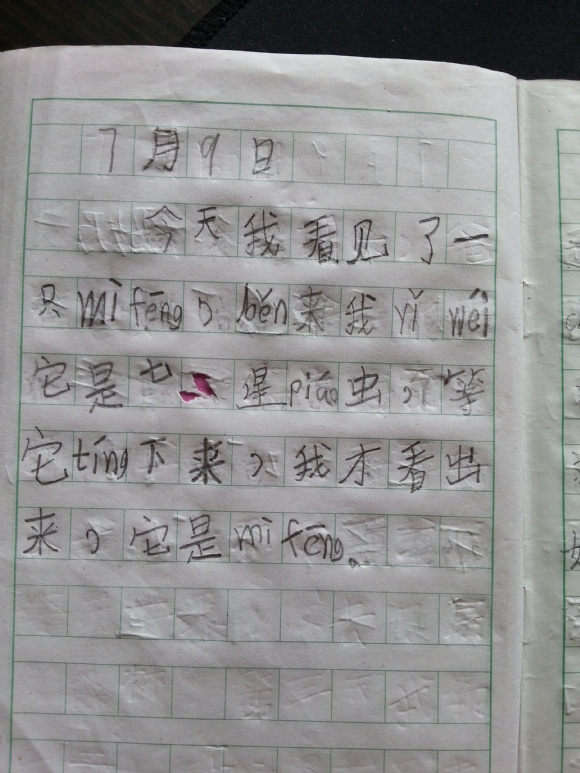 7月9日
今天我看见了一
只mì fēng，běn来我yǐ wéi
它是七星piáo虫，等
它tíng下来，我才看出
来，它是mì fēng。